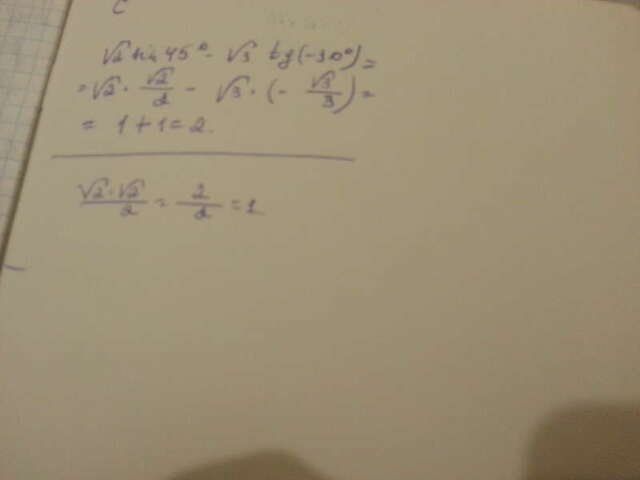 C
√2 sin 45° - √3 tg(-30°) =
= √2 · √2/2 - √3 · (- √3/3) =
= 1 + 1 = 2.
√2 · √2/2 = 2/2 = 1